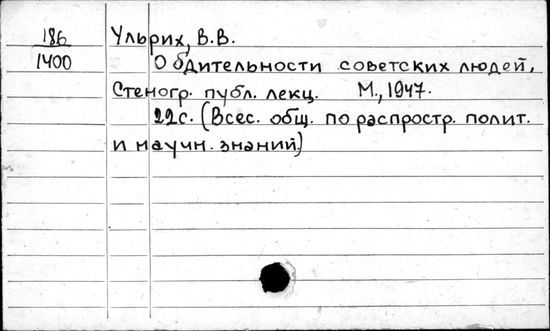 186 Ульрих, В.В.
1400 О бдительности советских людей.
Стеногр. публ. лекц. М., 1947.
22с. (Всес. общ. по распростр. полит.
и научн. знаний)